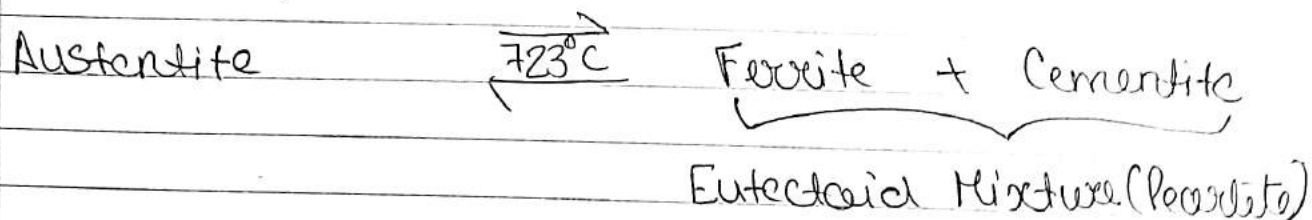 Austentite 723°C Ferrite + Cementite
Eutectoid Mixture (Pearlite)